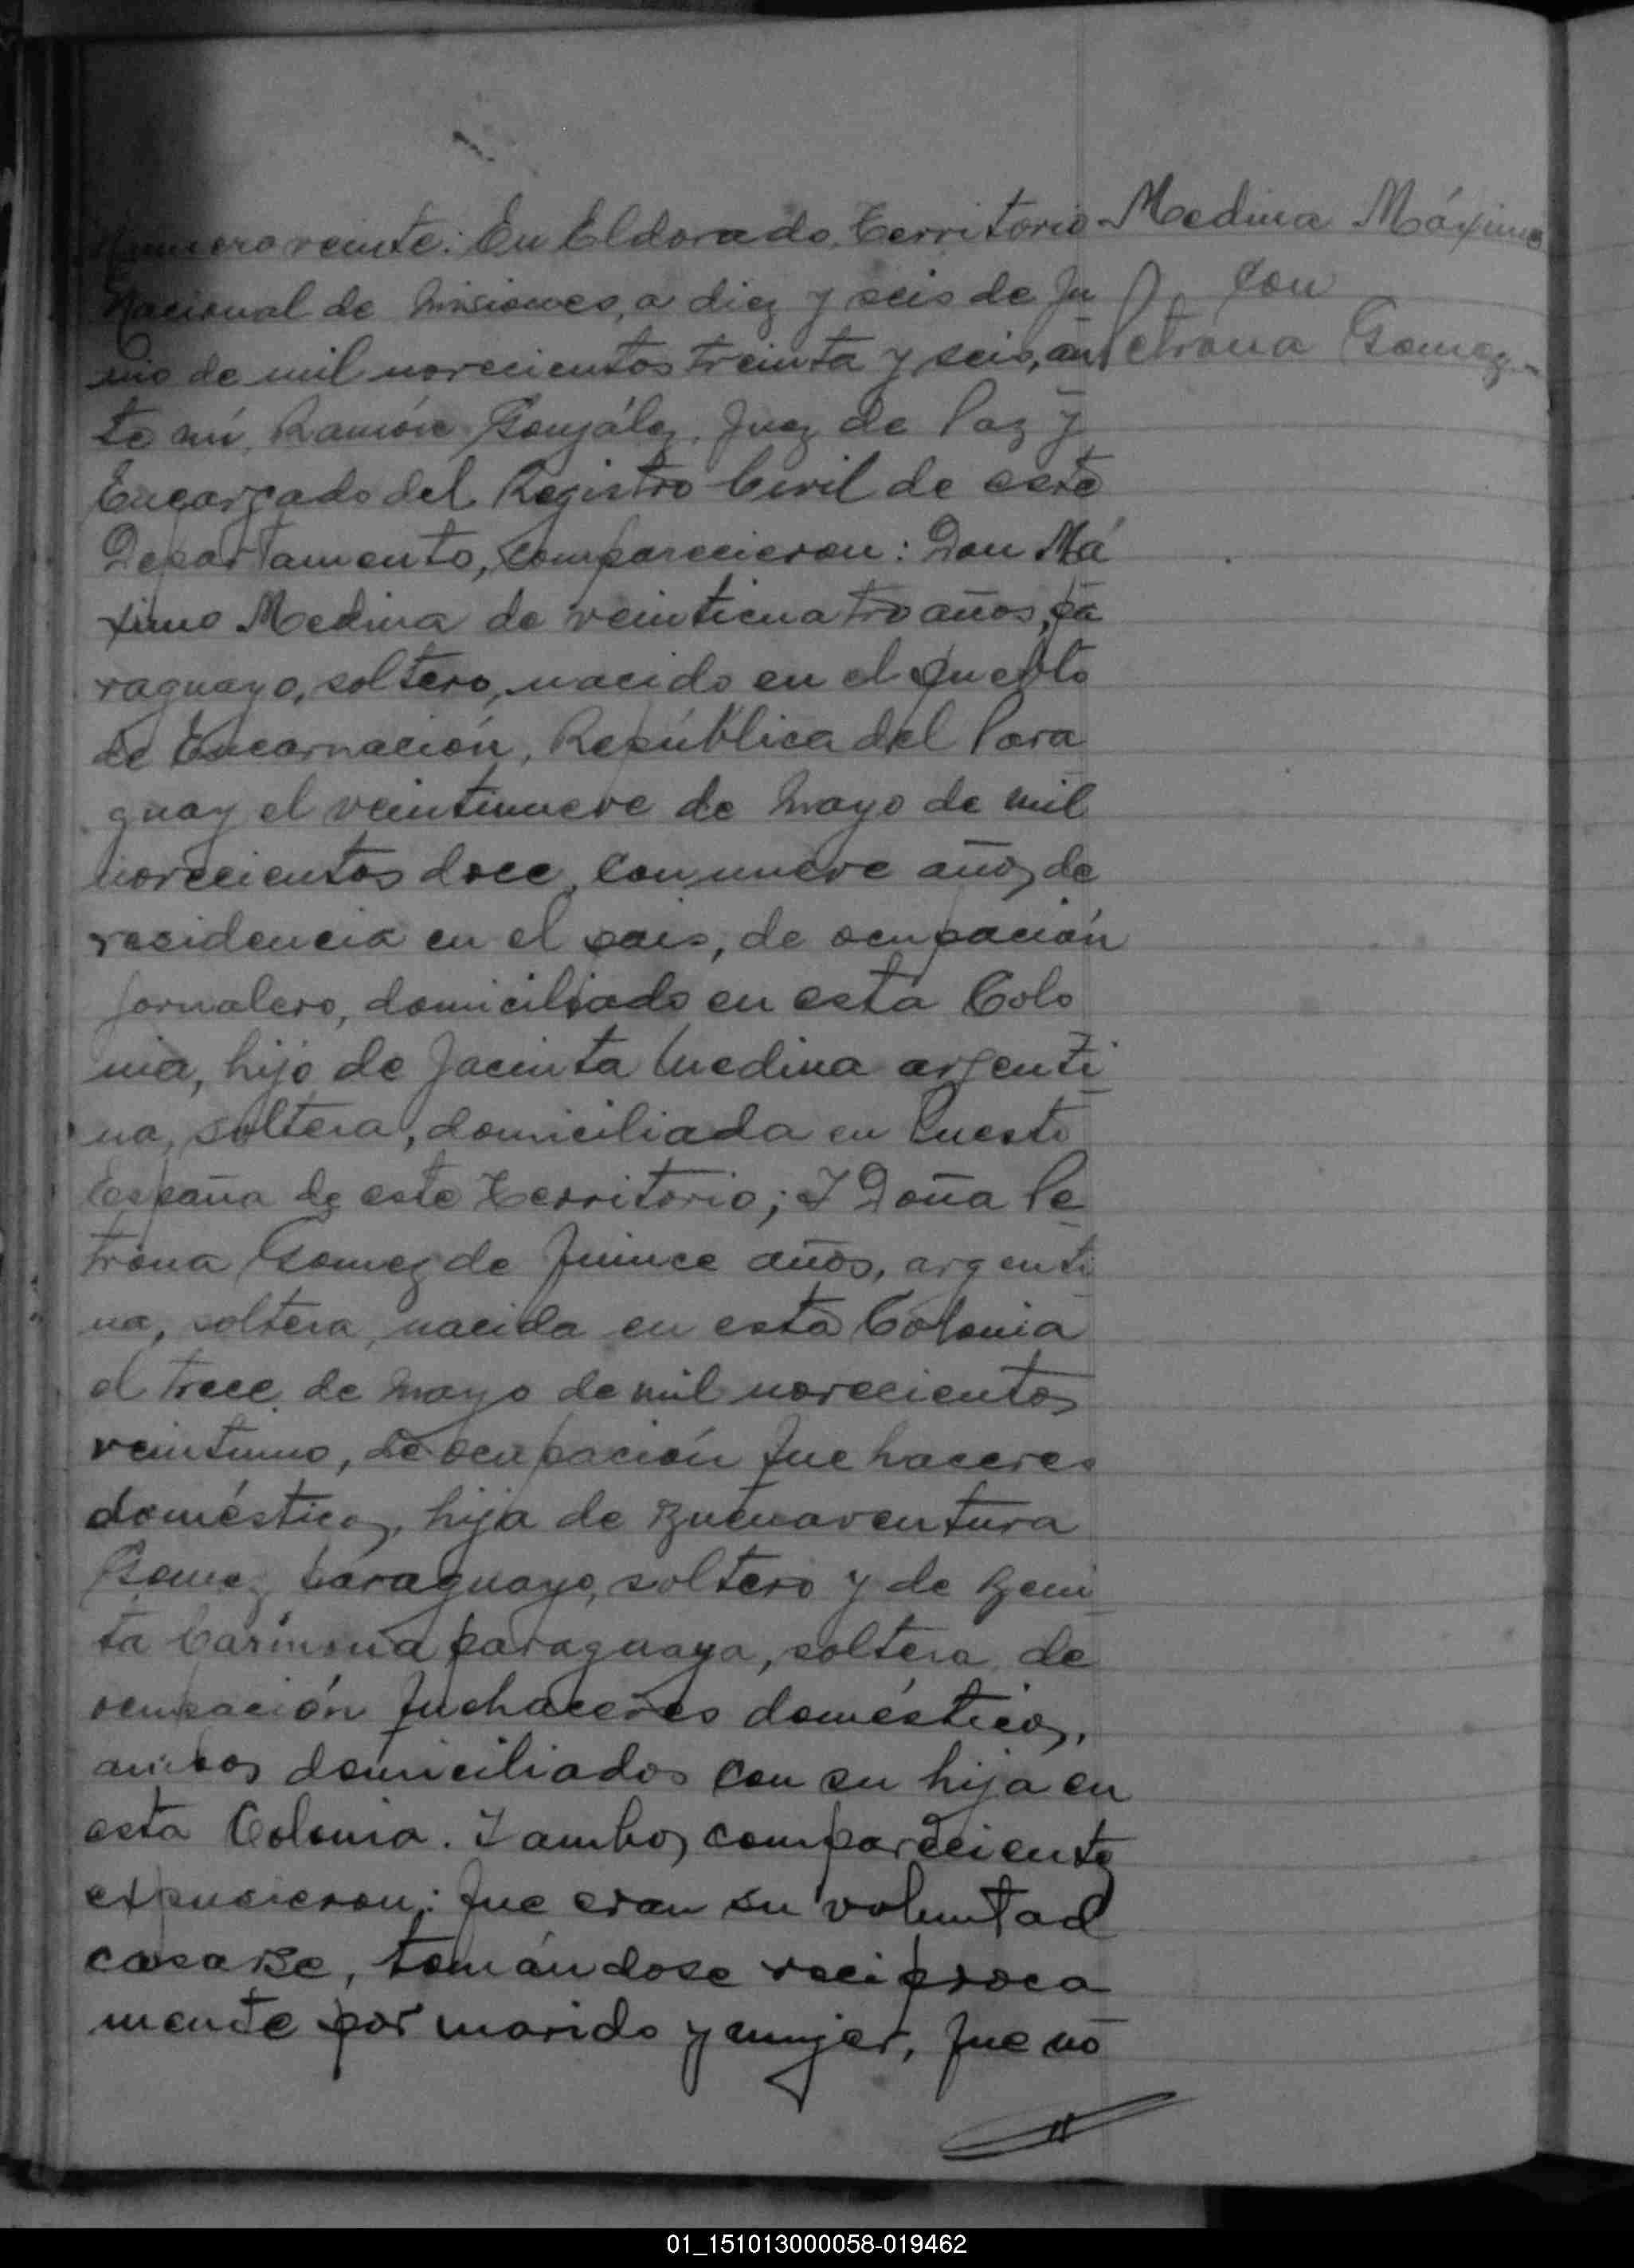 Numero veinte: En Eldorado, Territorio
Nacional de Misiones, a diez y seis de Ju
nio de mil novecientos treinta y seis, an
te mí, Ramón González, Juez de Paz y
Encargado del Registro Civil de este
Departamento, comparecieron: Don Má
ximo Medina de veinticuatro años, pa
raguayo, soltero, nacido en el pueblo
de Encarnación, República del Para
guay el veintinueve de Mayo de mil
novecientos doce, con nueve años de
residencia en el pais, de ocupación
jornalero, domiciliado en esta Colo
nia, hijo de Jacinta Medina argenti
na, soltera, domiciliada en Puesto
España de este Territorio; Y Doña Pe
trona Gomez de quince años, argenti
na, soltera, nacida en esta Colonia
el trece de Mayo de mil novecientos
veintiuno, de ocupación quehaceres
domésticos, hija de Buenaventura
Gomez paraguayo, soltero y de Beni
ta Carmona paraguaya, soltera de
ocupación quehaceres domésticos,
ambos domiciliados con su hija en
esta Colonia. Y ambos comparecientes
expusieron: que eran su voluntad
casarse, tomándose reciproca
mente por marido y mujer, que no
Medina Máximo
con
Petrona Gomez
01_151013000058-019462